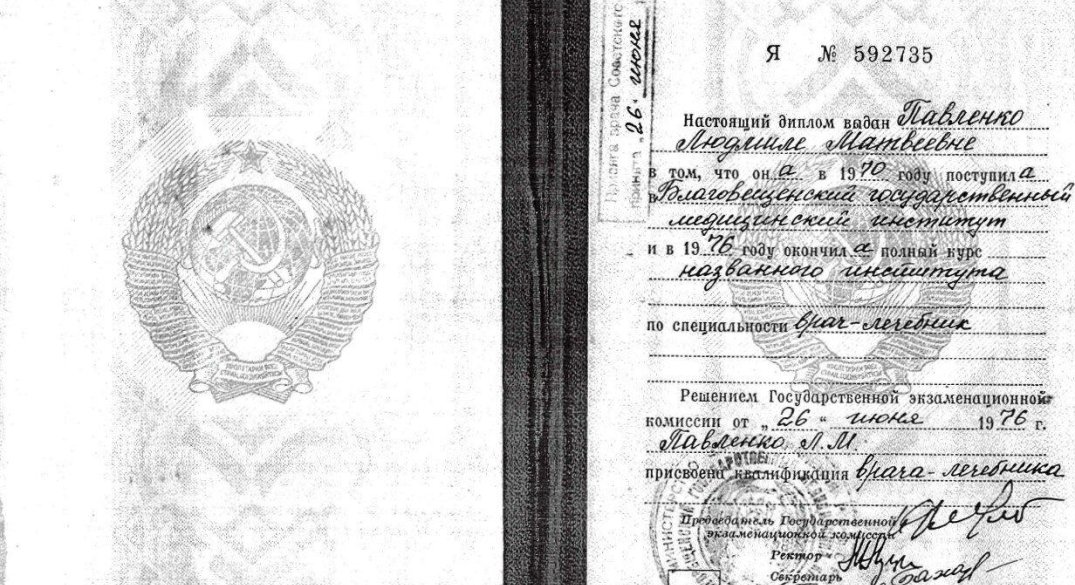 Я № 592735
Настоящий диплом выдан Павленко
Людмиле Матвеевне
в том, что он а в 1970 году поступил а
в Благовещенский государственный
медицинский институт
и в 1976 году окончил а полный курс
названного института
по специальности врач-лечебник
Решением Государственной экзаменационной
комиссии от „ 26 “ июня 1976 г.
Павленко Л. М.
присвоена квалификация врача-лечебника
Председатель Государственной
экзаменационной комиссии
Ректор
Секретарь
врача Советского
„26“ июня